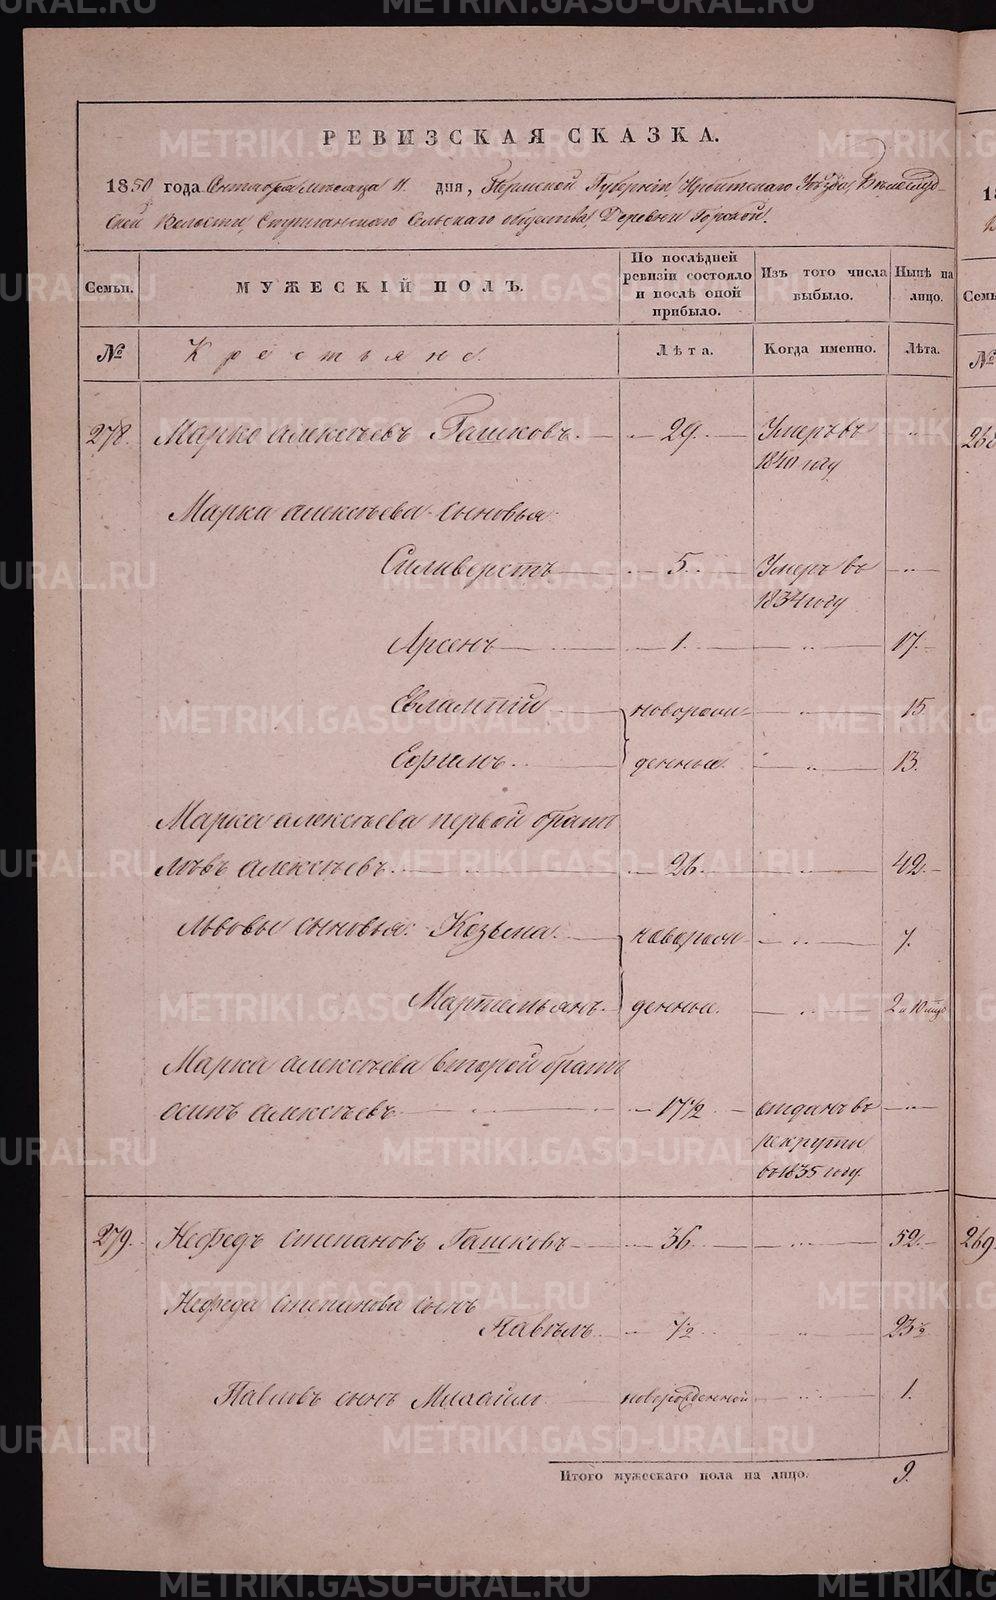 РЕВИЗСКАЯ СКАЗКА.
1850 года Октября месяца 11. дня, Пермской Губернии, Ирбитскаго Уѣзда, Бѣлослуд-
ской Волости, Стриганскаго Сельскаго общества, Деревни Горской.
Семьи. МУЖЕСКІЙ ПОЛЪ. По послѣдней ревизіи состояло и послѣ оной прибыло. Изъ того числа выбыло. Нынѣ на лицо.
№ Крестьяне. Лѣта. Когда именно. Лѣта.
278. Марко алексѣевъ Гашковъ. 29. Умеръ въ
1840 году
Марка алексѣева сыновья
Силиверстъ 5. Умеръ въ
1834 году
Арсенъ 1. 17.
Евлампій новорож- 15
Ефимъ. денные. 13.
Марка алексѣева первой братъ
Львъ алексѣевъ. 26. 42.
Львовы сыновья: Козьма. новорож- 7.
Мартемьянъ. денные. 2 и 10 мцъ
Марка алексѣева второй братъ
осипъ алексѣевъ 17 1/2 отданъ въ
рекруты
въ 1835 году.
279. Нефедъ Степановъ Гашковъ 36. 52.
Нефеда Степанова сынъ
Павелъ. 7 1/2 23 1/2
Павловъ сынъ Михайло новорожденной 1.
Итого мужескаго пола на лицо. 9.
268
269
METRIKI.GASO-URAL.RU